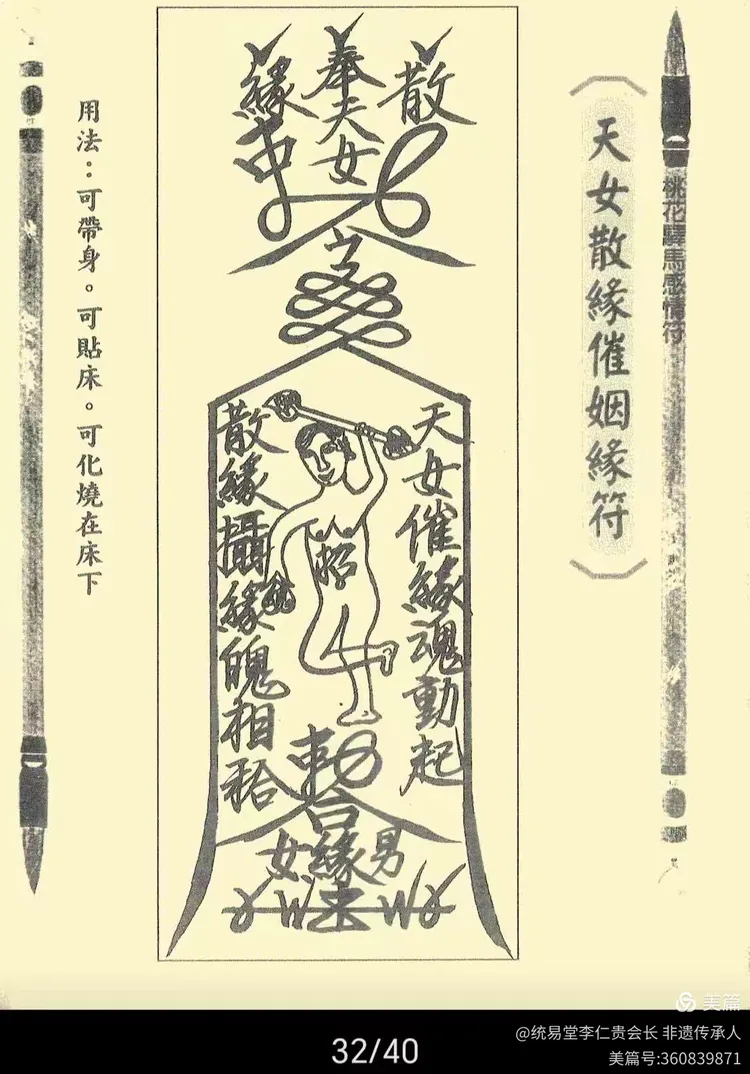 桃花驛馬感情符
（天女散緣催姻緣符）
散
奉天女
緣
天女催緣魂動起
散緣攝緣魄相
招
合
男
緣
女
用法：可帶身。可貼床。可化燒在床下
美篇
32/40
@统易堂李仁贵会长 非遗传承人
美篇号:360839871